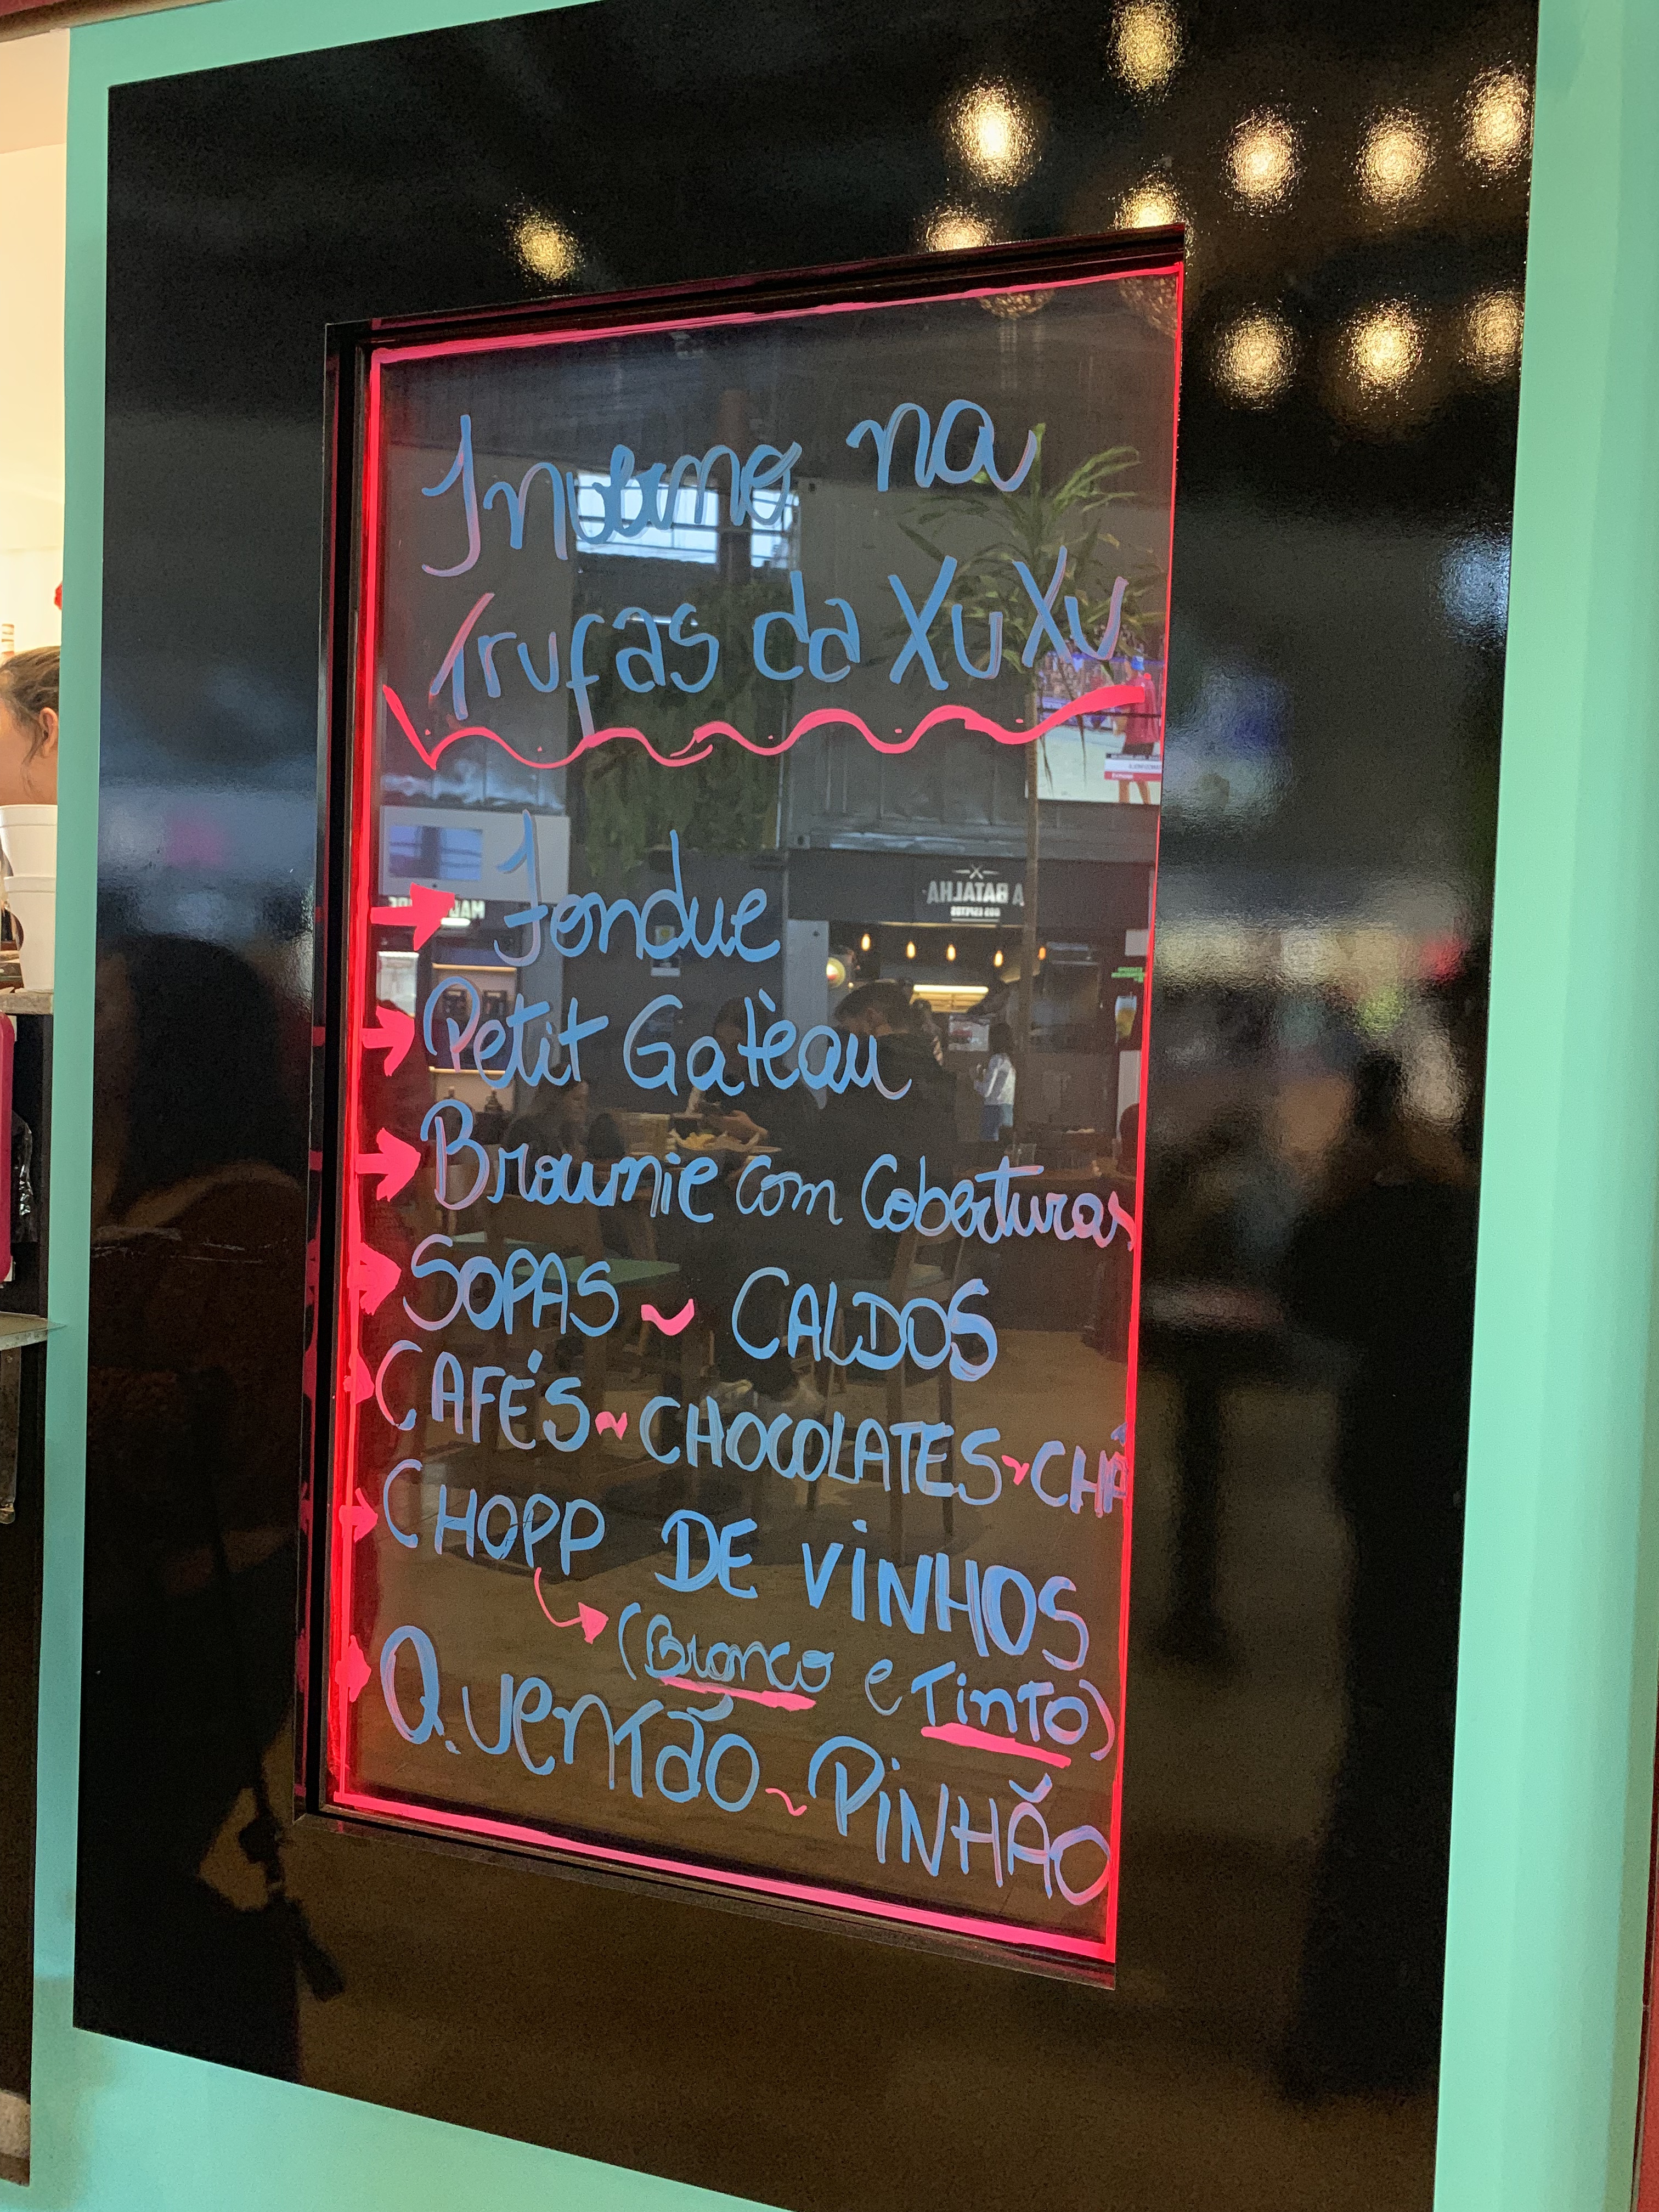 Inverno na
Trufas da XuXu
Fondue
Petit Gatèau
Brownie com Coberturas
SOPAS ~ CALDOS
CAFÉS ~ CHOCOLATES ~ CHÁ
CHOPP DE VINHOS
(Branco e Tinto)
Quentão ~ PINHÃO
A BATALHA
DOS ESPETOS